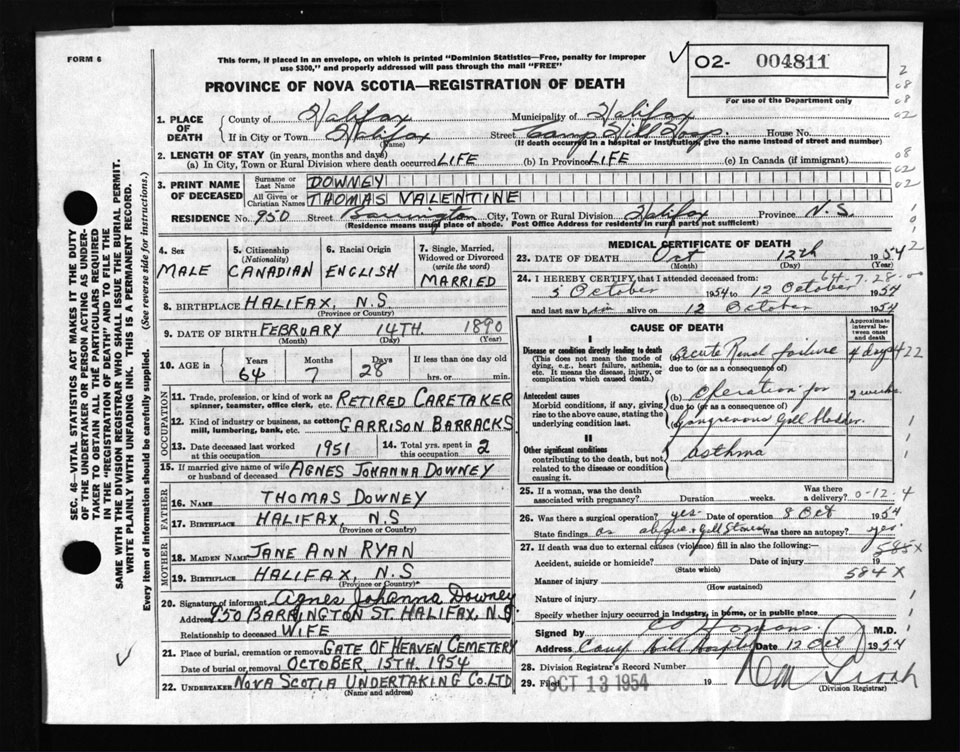 FORM 6
This form, if placed in an envelope, on which is printed "Dominion Statistics—Free, penalty for improper
use $300," and properly addressed will pass through the mail "FREE"
PROVINCE OF NOVA SCOTIA—REGISTRATION OF DEATH
02- 004811
For use of the Department only
SEC. 46—VITAL STATISTICS ACT MAKES IT THE DUTY
OF THE UNDERTAKER OR PERSON ACTING AS UNDER-
TAKER TO OBTAIN ALL THE PARTICULARS REQUIRED
IN THE "REGISTRATION OF DEATH" AND TO FILE THE
SAME WITH THE DIVISION REGISTRAR WHO SHALL ISSUE THE BURIAL PERMIT.
WRITE PLAINLY WITH UNFADING INK. THIS IS A PERMANENT RECORD.
Every item of information should be carefully supplied. (See reverse side for instructions.)
1. PLACE OF DEATH
County of Halifax Municipality of Halifax
If in City or Town Halifax Street Camp Hill Hosp. House No.
(Name) (If death occurred in a hospital or institution, give the name instead of street and number)
2. LENGTH OF STAY (in years, months and days)
(a) In City, Town or Rural Division where death occurred LIFE (b) In Province LIFE (c) In Canada (if immigrant)
3. PRINT NAME OF DECEASED
Surname or Last Name DOWNEY
All Given or Christian Names THOMAS VALENTINE
RESIDENCE No. 950 Street Barrington City, Town or Rural Division Halifax Province N.S.
(Residence means usual place of abode. Post Office Address for residents in rural parts not sufficient)
4. Sex MALE
5. Citizenship (Nationality) CANADIAN
6. Racial Origin ENGLISH
7. Single, Married, Widowed or Divorced (write the word) MARRIED
8. BIRTHPLACE HALIFAX, N.S.
(Province or Country)
9. DATE OF BIRTH FEBRUARY 14TH. 1890
(Month) (Day) (Year)
10. AGE in Years 64 Months 7 Days 28 If less than one day old hrs. or min.
OCCUPATION
11. Trade, profession, or kind of work as spinner, teamster, office clerk, etc. RETIRED CARETAKER
12. Kind of industry or business, as cotton mill, lumbering, bank, etc. GARRISON BARRACKS
13. Date deceased last worked at this occupation 1951
14. Total yrs. spent in this occupation 2
15. If married give name of wife or husband of deceased AGNES JOHANNA DOWNEY
FATHER
16. NAME THOMAS DOWNEY
17. BIRTHPLACE HALIFAX, N.S
(Province or Country)
MOTHER
18. MAIDEN NAME JANE ANN RYAN
19. BIRTHPLACE HALIFAX, N.S
(Province or Country)
20. Signature of informant Agnes Johanna Downey
Address 950 BARRINGTON ST. HALIFAX, N.S.
Relationship to deceased WIFE
21. Place of burial, cremation or removal GATE OF HEAVEN CEMETERY
Date of burial or removal OCTOBER, 15TH. 1954
22. UNDERTAKER NOVA SCOTIA UNDERTAKING CO. LTD
(Name and address)
MEDICAL CERTIFICATE OF DEATH
23. DATE OF DEATH Oct 12th 1954
(Month) (Day) (Year)
64-7-28
24. I HEREBY CERTIFY, that I attended deceased from:
5 October 1954 to 12 October 1954
and last saw him alive on 12 October 1954
CAUSE OF DEATH
Approximate interval between onset and death
I
Disease or condition directly leading to death
(This does not mean the mode of dying, e.g., heart failure, asthenia, etc. It means the disease, injury, or complication which caused death.)
(a) Acute Renal failure 4 days 422
due to (or as a consequence of)
Antecedent causes
Morbid conditions, if any, giving rise to the above cause, stating the underlying condition last.
(b) Operation for 2 weeks
due to (or as a consequence of)
Gangrenous Gall bladder
II
Other significant conditions
contributing to the death, but not related to the disease or condition causing it.
asthma
25. If a woman, was the death associated with pregnancy? Duration weeks. Was there a delivery? 0-12-4
26. Was there a surgical operation? yes Date of operation 8 Oct 1954
State findings as above, Gall Stones Was there an autopsy? yes
585X
27. If death was due to external causes (violence) fill in also the following:—
Accident, suicide or homicide? Date of injury 19
(State which)
584X
Manner of injury
(How sustained)
Nature of injury
Specify whether injury occurred in industry, in home, or in public place
Signed by M.D.
Address Camp Hill Hospital Date 12 Oct 1954
28. Division Registrar's Record Number
29. Filed OCT 13 1954 19
(Division Registrar)